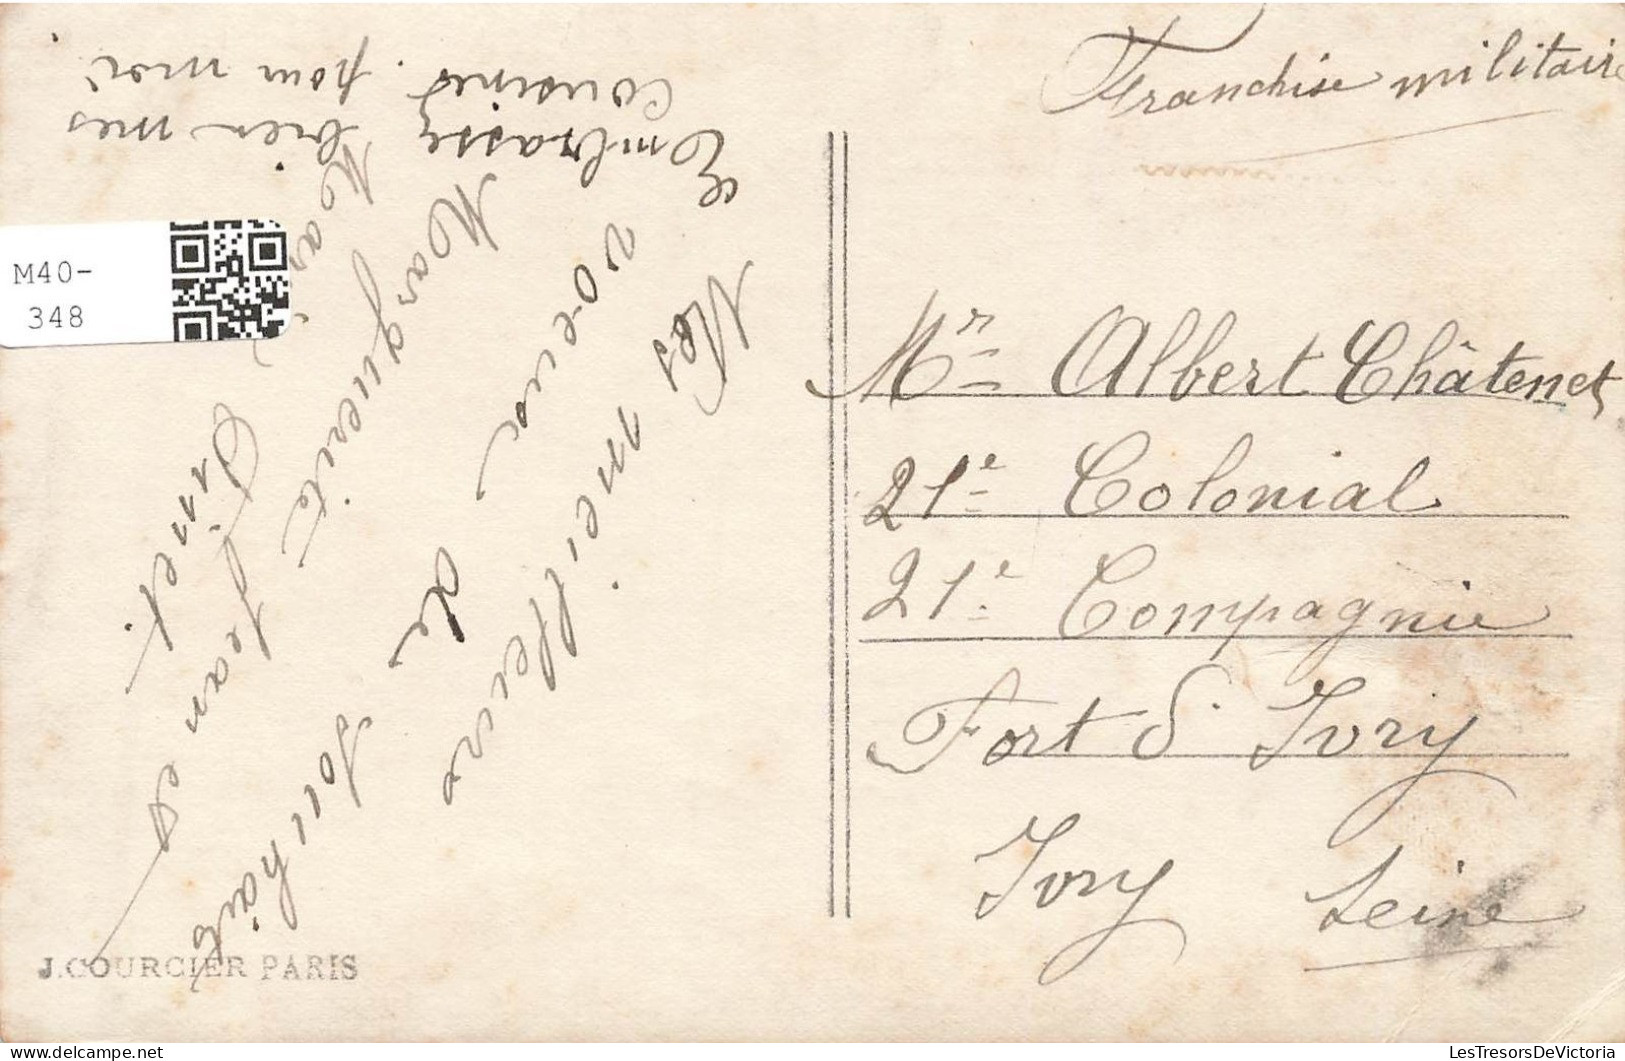 Franchise militaire
Mr Albert Châtenet
21e Colonial
21e Compagnie
Fort d'Ivry
Ivry Seine
Mes meilleurs
voeux de souhaits
Marguerite Jean et
Marie Dinet.
Embrassez bien mes
cousines pour moi
M40-
348
J. COURCIER PARIS
LesTresorsDeVictoria